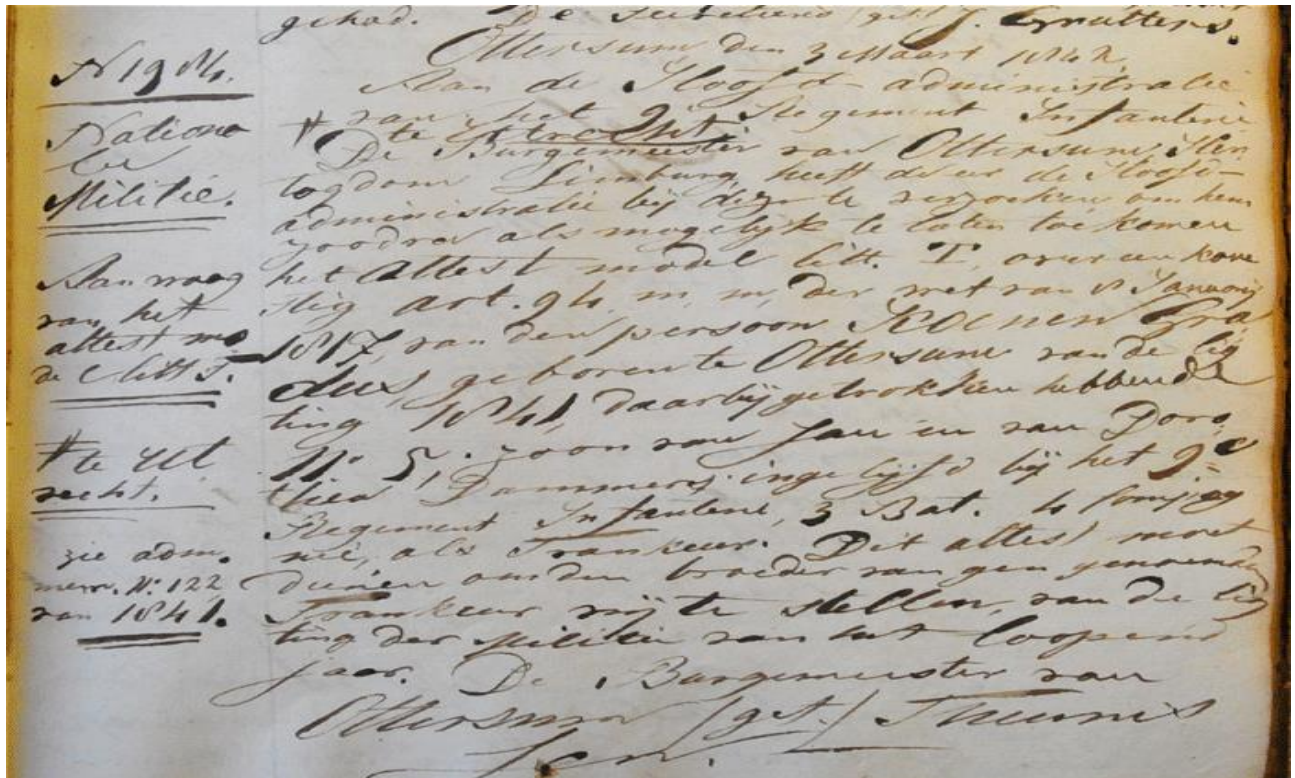 gehad. De secretaris (get.) J. Grutters.
N 1984.
Nationa
le
Militie.
Aanvraag
van het
attest mo
del litt T.
# te Ut
recht.
zie adm.
mem. N: 122
van 1841.
Ottersum den 3 Maart 1842.
Aan de Hoofd-administratie
van het 9e Regiment Infanterie
# te Utrecht
De Burgemeester van Ottersum, Her
togdom Limburg heeft de eer de Hoofd-
administratie bij deze te verzoeken om hem
zoodra als mogelijk te laten toekomen
het attest model litt. T, overeenkom
stig art. 94 m, m, der wet van 8 January
1817, van den persoon Koenen Gra
dus, geboren te Ottersum van de lig
ting 1841, daarbij getrokken hebbende
N° 5, zoon van Jan en van Doro
thea Dammers, ingelijfd bij het 9e
Regement Infanterie, 3 Bat. 4 Compag
nie, als Frankeur. Dit attest moet
dienen om den broeder van gen genoemden
Frankeur vrij te stellen, van de lig
ting der Militie van het loopend
jaar. De Burgemeester van
Ottersum (get.) Theunis
sen.